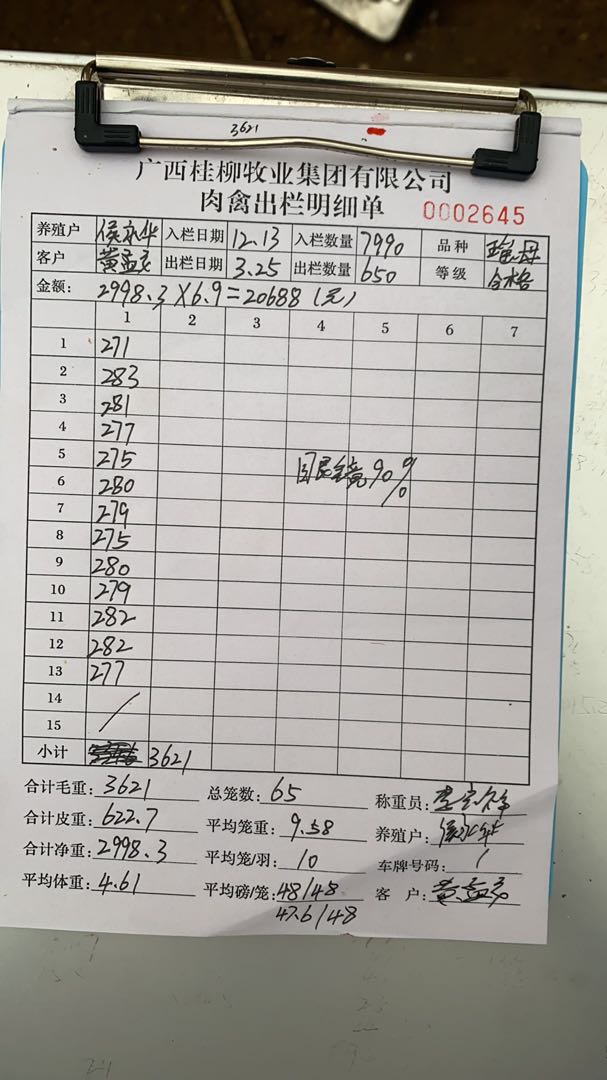 3621
广西桂柳牧业集团有限公司
肉禽出栏明细单 0002645
养殖户 侯永华 入栏日期 12.13 入栏数量 7990 品种 瑶母
客户 黄孟友 出栏日期 3.25 出栏数量 650 等级 合格
金额: 2998.3×6.9=20688(元)
1 2 3 4 5 6 7
1 271
2 283
3 281
4 277
5 275
6 280
7 279
8 275
9 280
10 279
11 282
12 282
13 277
14
15
90%
小计 3621
合计毛重: 3621 总笼数: 65 称重员:
合计皮重: 622.7 平均笼重: 9.58 养殖户: 侯永华
合计净重: 2998.3 平均笼/羽: 10 车牌号码: /
平均体重: 4.61 平均磅/笼: 48/48 客 户: 黄孟友
47.6/48